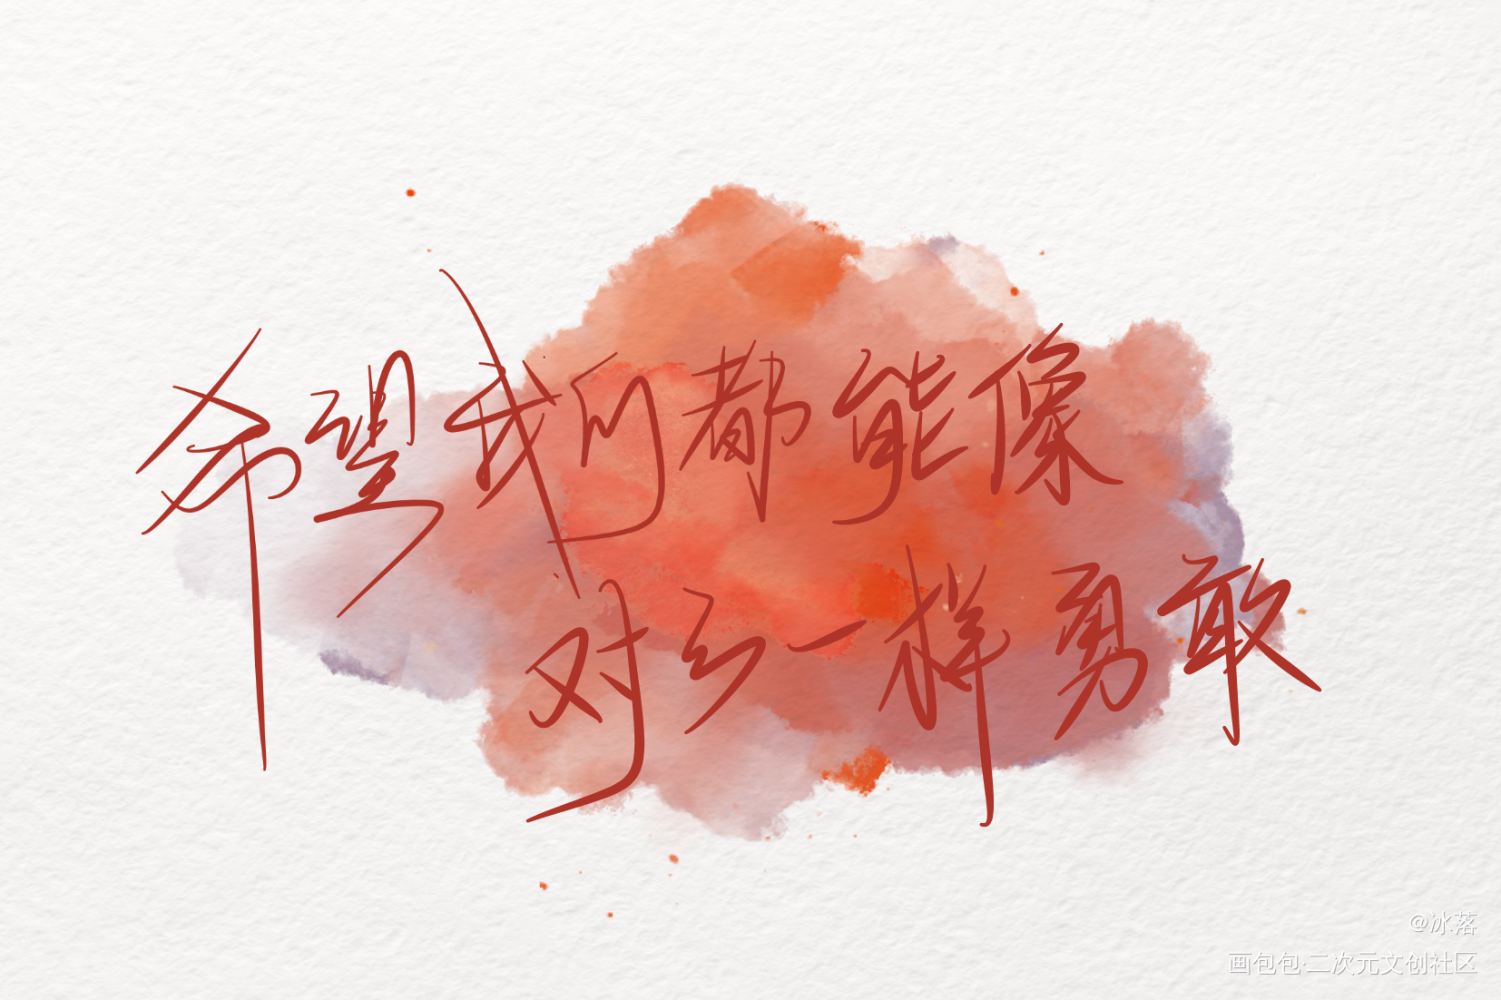 希望我们都能像
对云一样勇敢
@冰落
画包包·二次元文创社区